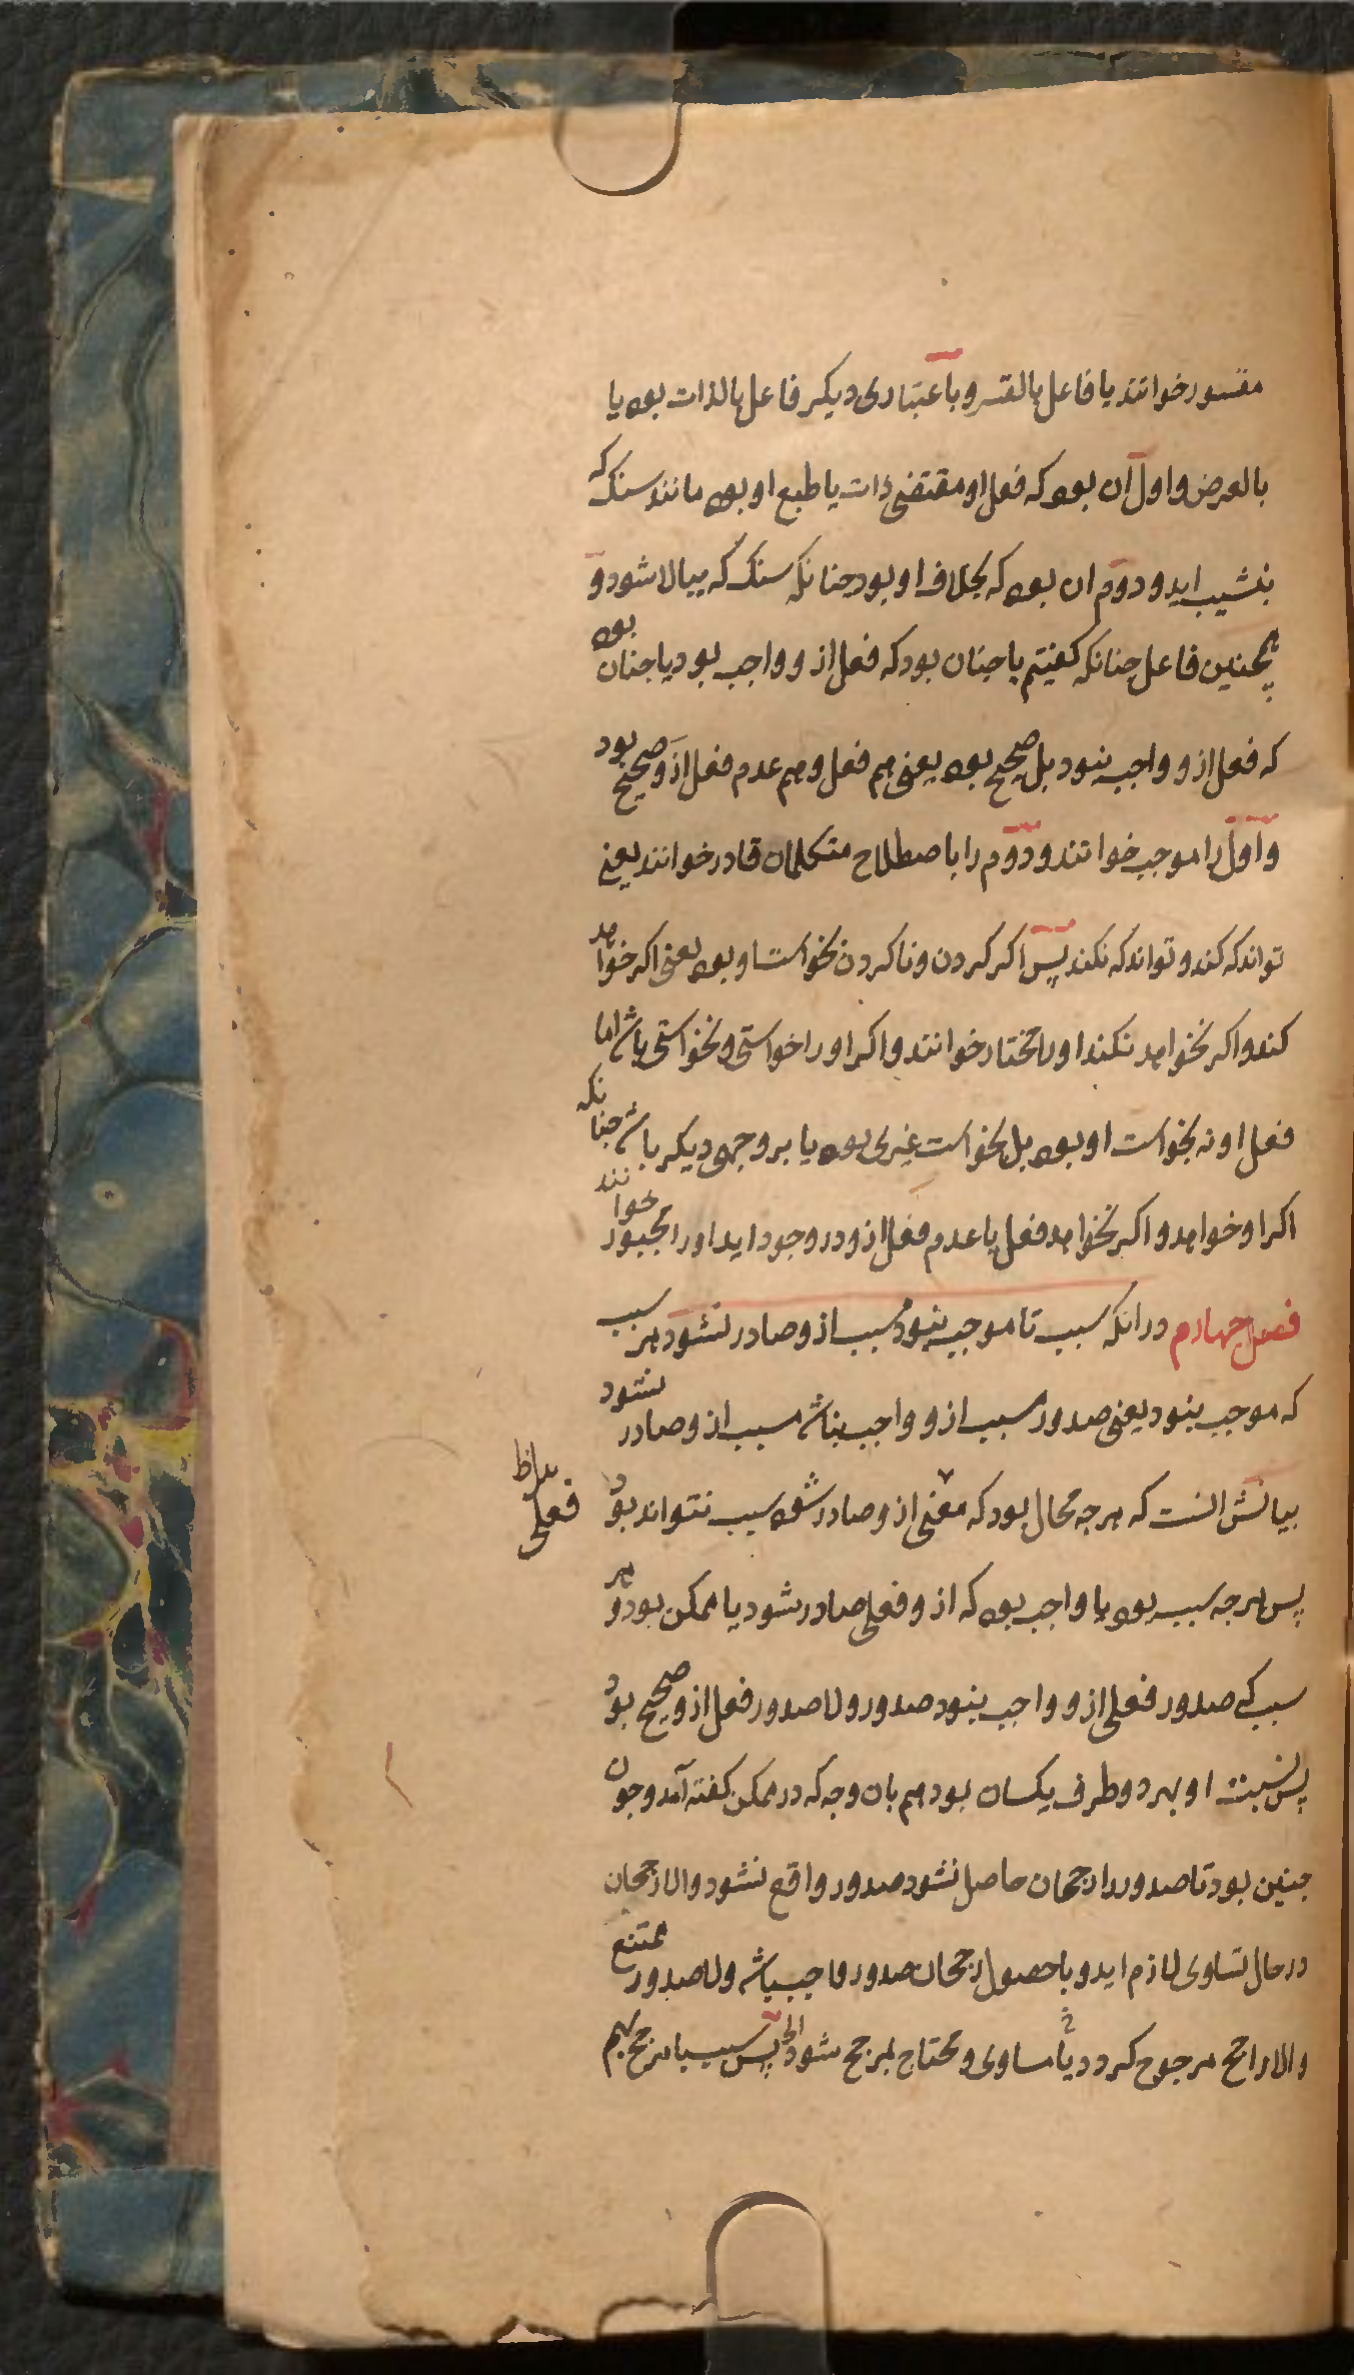 مقسور خوانند یا فاعل بالقسر و باعتباری دیکر فاعل بالذات بود یا
بالعرض و اول آن بود که فعل او مقتضی ذات یا طبع او بود مانند سنک که
بنشیب اید و دوم ان بود که بخلاف او بود جنانکه سنک که ببالا شود و
همچنین فاعل جنانکه کفتیم یا جنان بود که فعل ازو واجب بود یا جنان بود
که فعل ازو واجب نبود بل صحیح بود یعنی هم فعل و هم عدم فعل ازو صحیح بود
و اول را موجب خوانند و دوم را باصطلاح متکلمان قادر خوانند یعنی
تواند که کند و تواند که نکند پس اکر کردن و ناکردن بخواست او بود یعنی اکر خواهد
کند و اکر نخواهد نکند او را مختار خوانند و اکر او را خواستی و نخواستی باشد اما
فعل او نه بخواست او بود بل بخواست غیری بود یا بر وجهی دیکر باشد جنانکه
اکر او خواهد و اکر نخواهد فعل یا عدم فعل ازو در وجود اید او را مجبور خوانند
فصل جهارم در انکه سبب تا موجب نبود مسبب ازو صادر نشود هر سبب
که موجب نبود یعنی صدور مسبب ازو واجب نباشد مسبب ازو صادر نشود
بیانش انست که هر جه محال بود که معنی ازو صادر شود سبب نتواند بود
فعلی
پس هر جه سبب بود یا واجب بود که ازو فعلی صادر شود یا ممکن بود و هر
سبب کی صدور فعلی ازو واجب نبود صدور و لا صدور فعل ازو صحیح بود
پس نسبت او بهر دو طرف یکسان بود هم بان وجه که در ممکن کفته آمد و جون
جنین بود تا صدور را رجحان حاصل نشود صدور واقع نشود والا رجحان
در حال تساوی لازم اید و با حصول رجحان صدور واجب باشد و لا صدور ممتنع
والا راجح مرجوح کردد یا مساوی و محتاج بمرجح شود الخ پس سبب با مرجح بهم